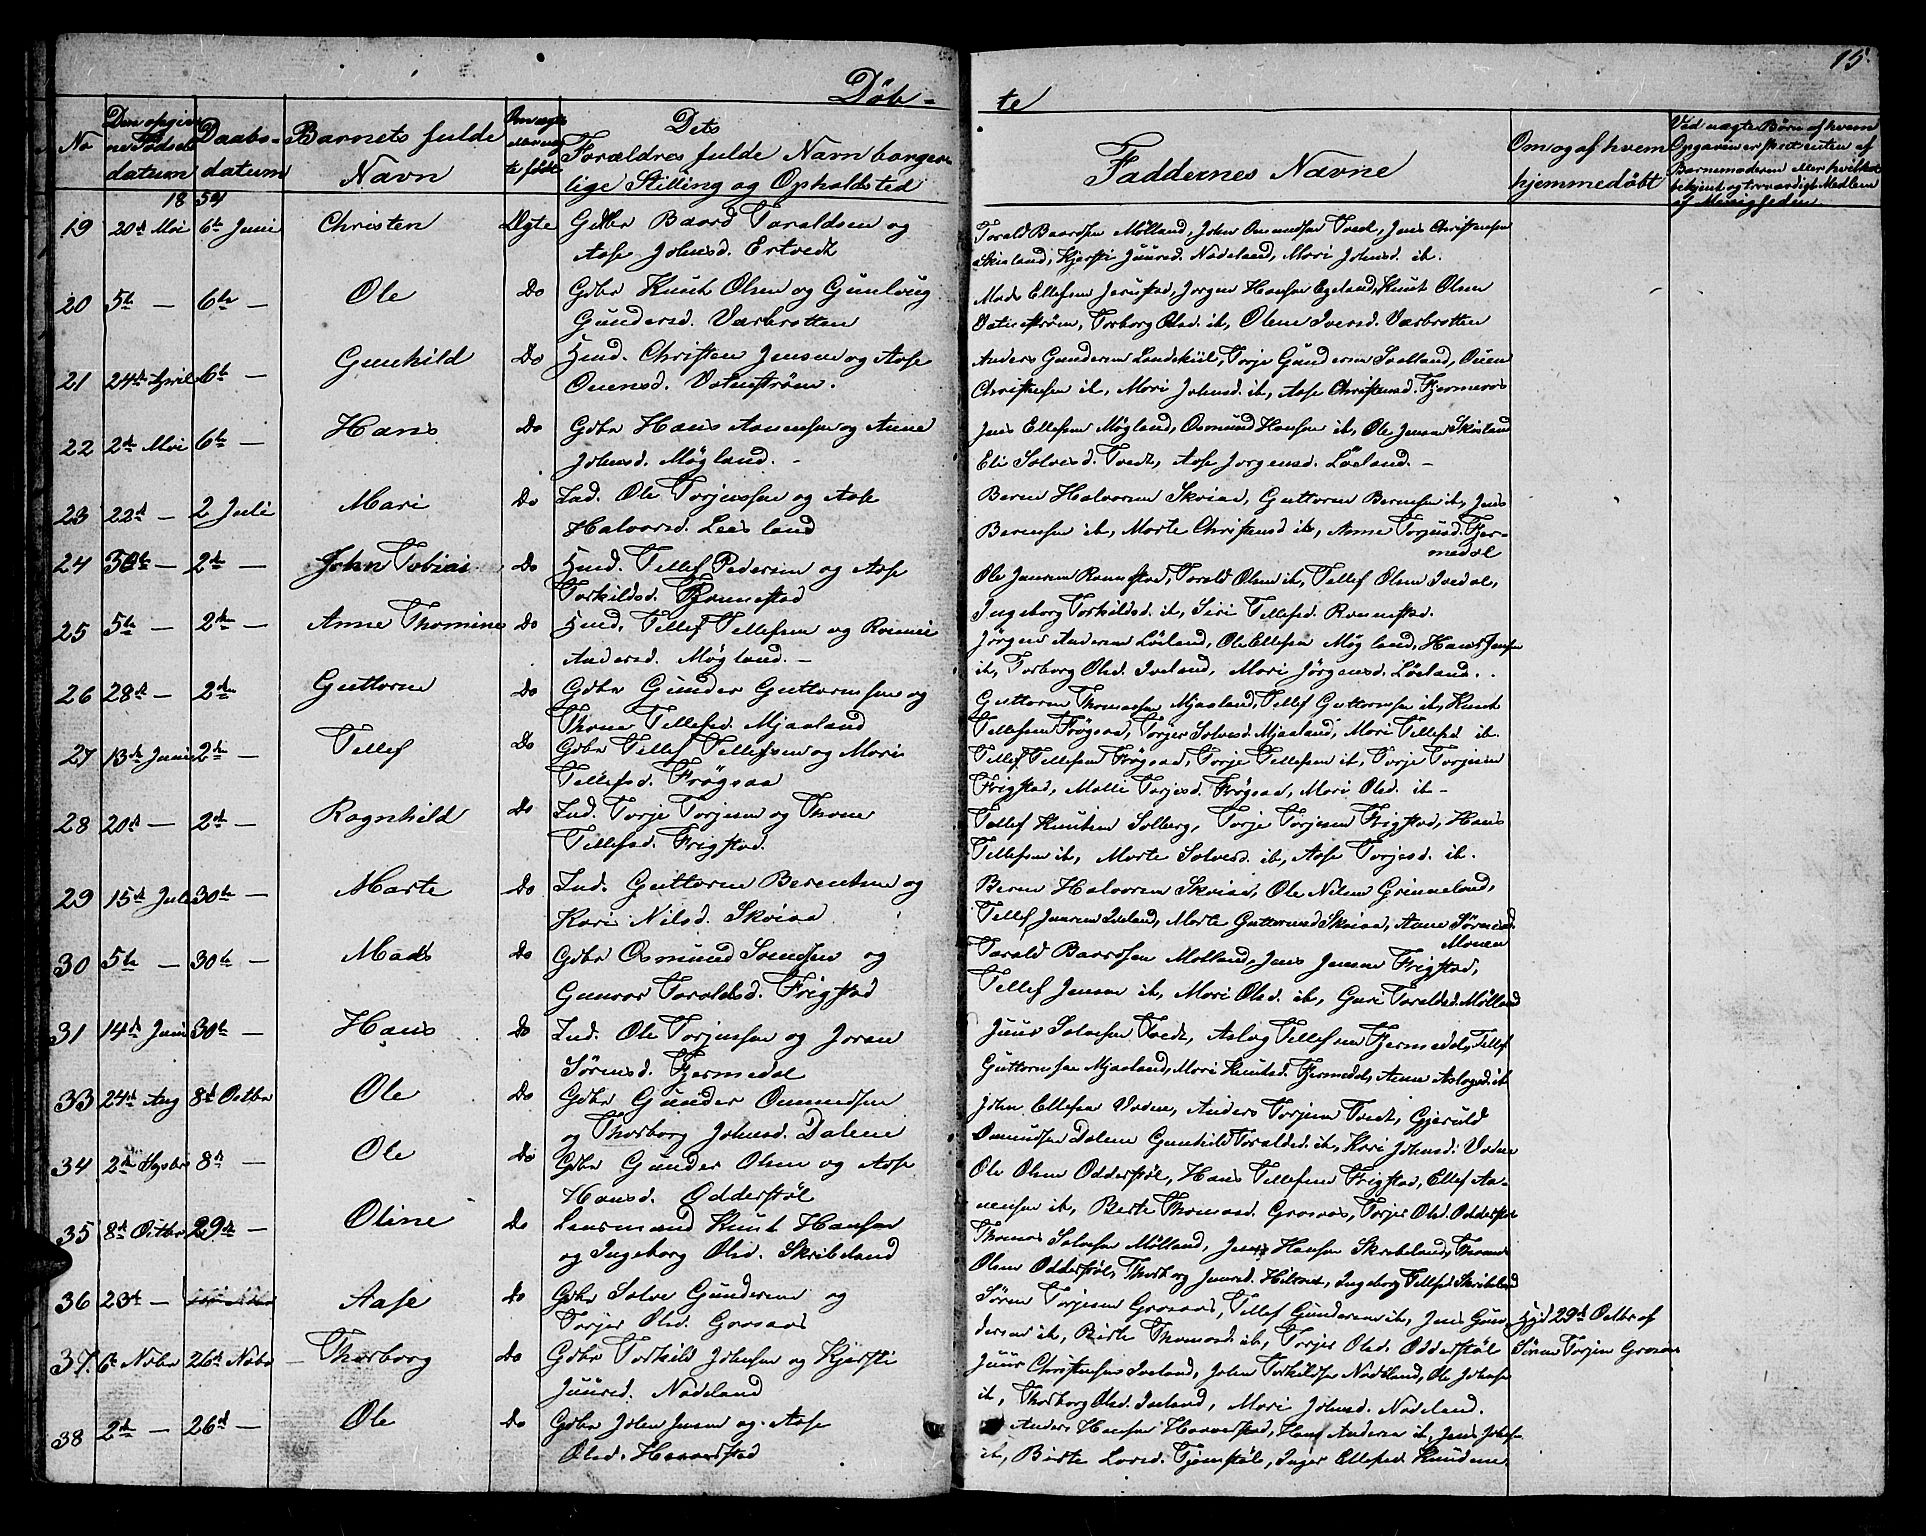 Döb-
te
15.
No
Den opgivne Fødselsdatum
Daabsdatum
Barnets fulde Navn
Om ægte eller uægte født
Dets Forældres fulde Navn borgerlige Stilling og Opholdsted
Faddernes Navne
Om og af hvem hjemmedøbt
1854
19 20d Mai 6te Juni Christen Ægte Gdbr Baard Taraldsen og
Aase Johnsd. Ertvedt
Torald Baardsen Mølland, John Osmundsen Tvedt, Jens Christensen
Skisland, Kjersti Juursd. Nodeland, Mari Johnsd. ib.
20 5te — 6te — Ole Do Gdbr Knut Olsen og Gunlaug
Gundersd.Værbrotten
Mads Ellefsen Jerustad, Jørgen Hansen Egeland, Knut Olsen
Vatnestrøm, Torborg Olsd. ib, Oline Iversd. Værbrotten
21 24de April 6te — Gunhild Do Hmd. Christen Jensen og Aase
Ouensd. Vatnstrøm.
Anders Gundersen Landskiil, Torje Gundersen Suetland, Ouen
Christensen ib, Mari Johnsd. ib, Aase Christensd. Fjermeros
22 2d Mai 6te — Hans Do Gdbr Hans Aanensen og Anne
Johnsd. Møgland. -
Jens Ellefsen Møgland, Osmund Hansen ib, Ole Jensen Skisland
Eli Solvesd. Tvedt, Aase Jørgensd. Løland. —
23 22d — 2 Juli Mari Do Ind. Ole Torjussen og Aase
Halvorsd. Leesland
Beren Halvorsen Skviae, Guttorm Berensen ib, Jens
Berensen ib, Marte Christensd ib, Anne Torjusd. Fjer-
medal
24 30te — 2de — John Tobias Do Hmd. Tellef Pedersen og Aase
Torkildsd. Ronnestad
Ole Jensen Ronnestad, Torald Olsen ib, Tellef Olsen Ivedal,
Ingeborg Torkildsd. ib, Siri Tellefsd. Ronnestad.
25 5te — 2de — Anne Thomine Do Hmd. Tellef Tellefsen og Ronnei
Andersd. Møgland. —
Jörgen Andersen Löiland, Ole Ellefsen Møgland, Hans Jensen
ib, Torborg Olsd. Iveland, Mari Jörgensd. Löeland.
26 28de — 2den Guttorm Do Gdbr Gunder Guttormsen og
Thone Tellefsd. Mjaaland
Guttorm Thomassen Mjaaland, Tellef Guttormsen ib, Knut
Tellefsen Frøgsaa, Torjer Solvesd. Mjaaland, Mari Tellefsd ib.
27 13de Juni 2de — Tellef Do Gdbr Tellef Tellefsen og Mari
Tellefsd. Frøgsaa
Tellef Tellefsen Frøgsaa, Torje Tellefsen ib, Torje Torjesen
Frigstad, Malli Torjesd. Frøgsaa, Mari Olsd. ib —
28 20d — 2de — Ragnhild Do Ind. Torje Torjesen og Thone
Tellefsd. Frigstad.
Tellef Knutsen Solberg, Torje Torjesen Frigstad, Hans
Tellefsen ib, Marte Solvesd. ib, Aase Torjesd. ib.
29 15de Juli 30te — Marte Do Ind. Guttorm Berentsen og
Kari Nilsd. Skviaa
Beren Halvorsen Skviaa, Ole Nilsen Grinneland,
Tellef Jensen Iveland, Marte Guttormsd Skviaa, Anne Sörensd.
Monen
30 5te — 30te — Mads Do Gdbr Osmund Svendsen og
Gunvor Taraldsd. Frigstad
Torald Baardsen Mølland, Jens Jensen Frigstad,
Tellef Jensen ib, Mari Olsd. ib, Guri Taraldsd. Mølland
31 14d Juni 30te — Hans Do Ind. Ole Torjussen og Joran
Sörensd. Fjermedal
Juur Solvesen Tvedt, Aslag Tellefsen Fjermedal, Tellef
Guttormsen Mjaaland, Mari Knutsd. Fjermedal, Anne Aslagsd. ib
33 24de Aug 8d Octbr Ole Do Gdbr Gunder Ommundsen
og Thorborg Johnsd. Dalene
John Ellefsen Vaden, Anders Torjesen Tvedt, Gjeruld
Osmundsen Dalene Gunhild Taraldsd. ib, Kari Johnsd. Vaden
34 8d — Ole Do Gdbr Gunder Olsen og Aase
Hansd. Odderstøl
Ole Olsen Odderstøl, Hans Tellefsen Frigstad, Ellef Aa-
nensen ib, Birte Thomasd. Grosaas, Torjer Olsd. Odderstøl
35 8d Octbr 29de — Oline Do Lensmand Knut Hansen
og Ingeborg Olsd. Skribeland
Thomas Solvesen Mølland, Jens Hansen Skribeland, Thomas
Olsen Odderstøl, Thorborg Juursd. Ingeborg Tellefsd. Skribeland
36 23d — Aase Do Gdbr Solve Gundersen og
Torjer Olsd. Grosaas
Sören Torjesen Grosaas, Tellef Gundersen ib, Jens Gun-
dersen ib, Birte Thomasd. ib, Torjer Olsd. Odderstøl
Hjd 29d Octbr af
Sören Torjesen Grosaas
37. 6te Novbr 26te Novbr Thorborg Do Gdbr Torkild Johnsen og Kjersti
Juursd. Nodeland
Juur Christensen Iveland, John Torkildsen Nodeland, Ole Johnsen
ib, Thorborg Olsd. Iveland, Mari Johnsd. Nodeland.
38 2de — 26d — Ole Do Gdbr John Jensen og Aase
Olsd. Havorstad
Anders Hansen Havorstad, Hans Andersen ib, Jens Johnsen
ib, Birte Larsd. Tjønstøl, Inger Ellefsd. Knudene